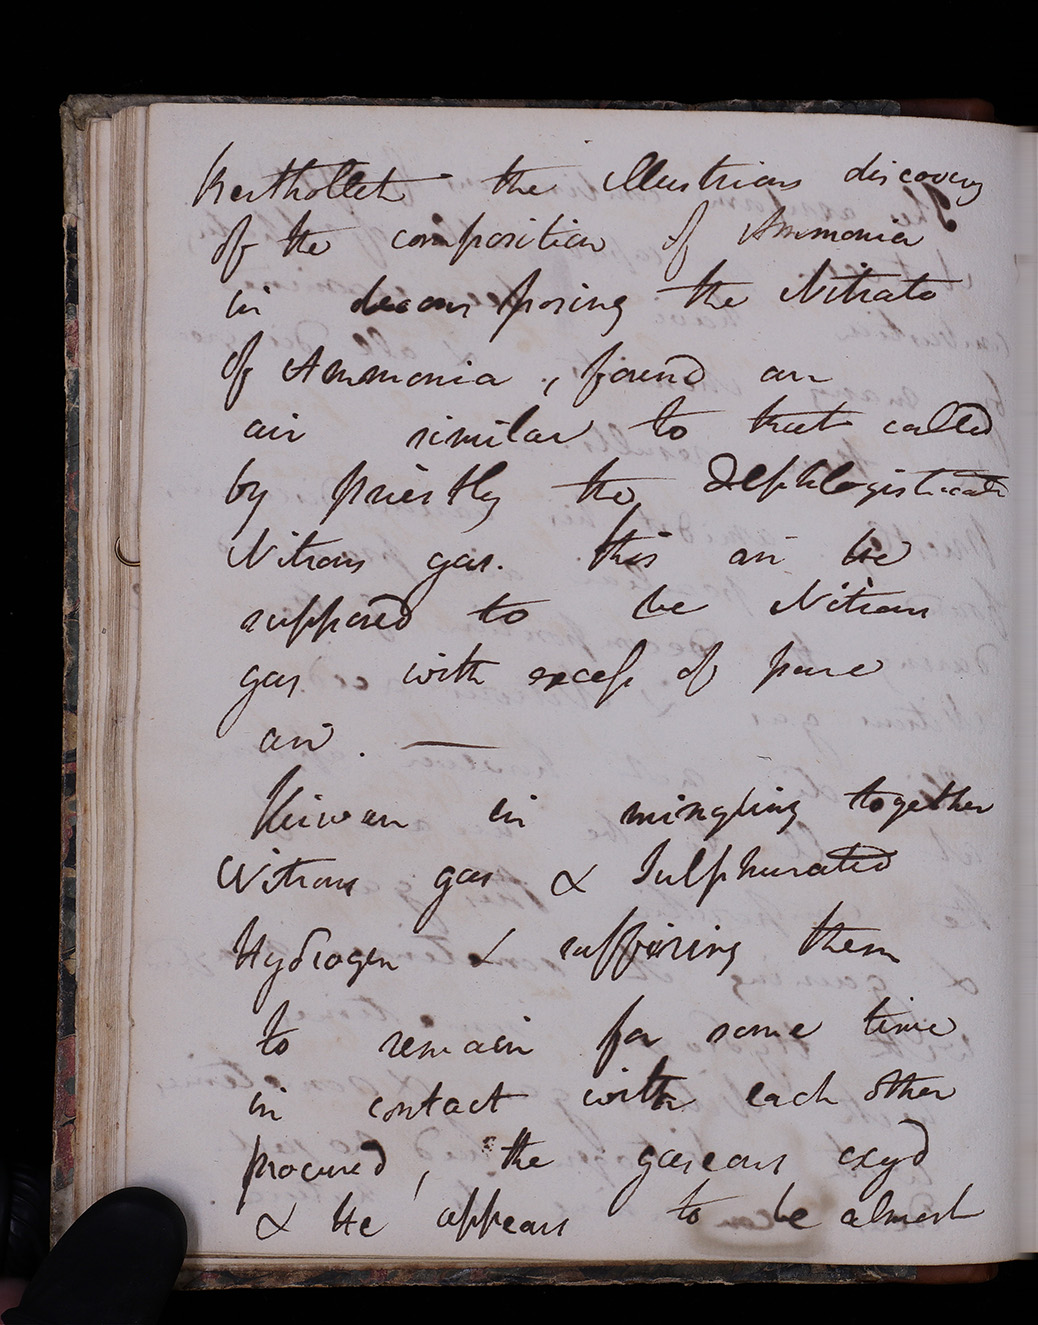 Berthollet the illustrious discovery
of the composition of Ammonia
in decomposing the Nitrate
of Ammonia, found an
air similar to that called
by priestly the Dephlogisticate
Nitrous gas. this air he
supposed to be Nitrous
gas with excess of pure
air. —
Kirwan in mingling together
Nitrous gas & Sulphurated
Hydrogen & suffering them
to remain for some time
in contact with each other
procured, the gaseous oxyd
& He appears to be almost